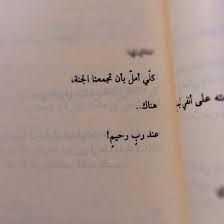 كلّي أملٌ بأن تجمعنا الجنة،
هناك..
عند ربٍ رحيمٍ!
ته على أنفي